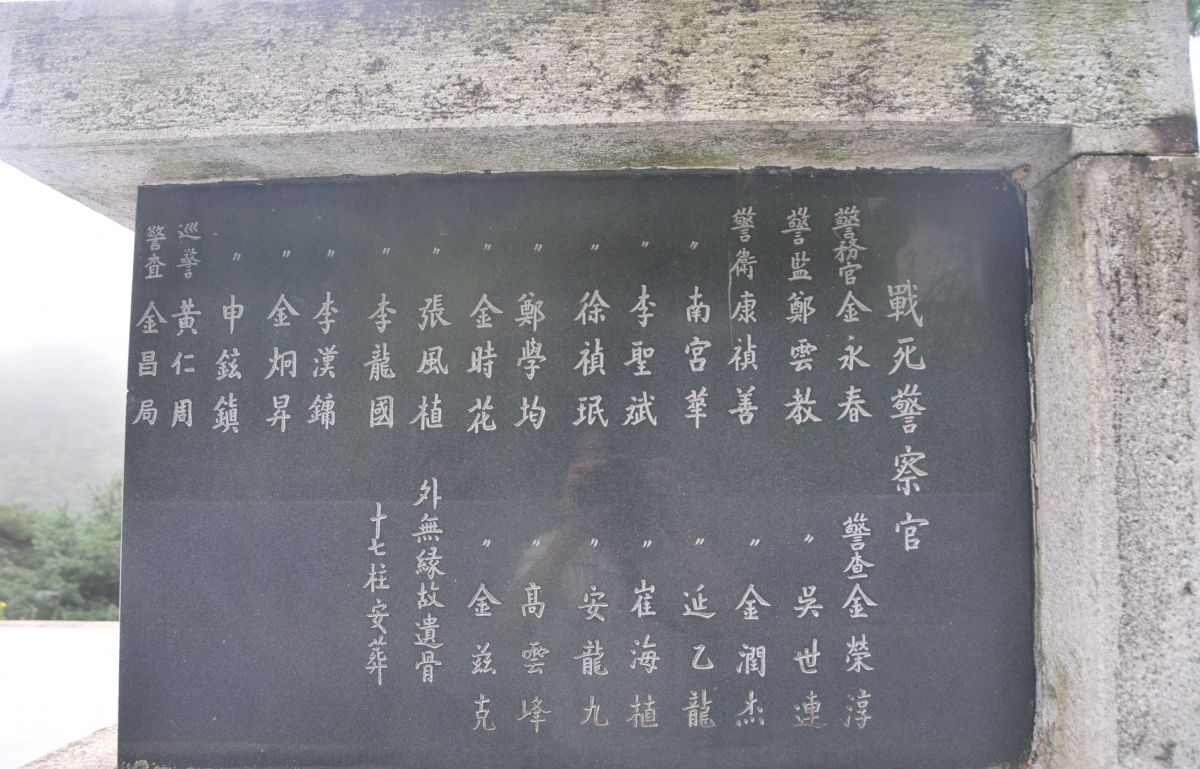 戰死警察官
警務官金永春
警監鄭雲教
警衛康禎善
〃南宮華
〃李聖斌
〃徐禎珉
〃鄭學均
〃金時花
〃張風植
〃李龍國
〃李漢鏞
〃金炯昇
〃申鉉鎭
巡警黃仁周
警査金昌局
警查金榮淳
〃吳世連
〃金潤杰
〃延乙龍
〃崔海植
〃安龍九
〃髙雲峰
〃金兹克
外無緣故遺骨
十七柱安葬